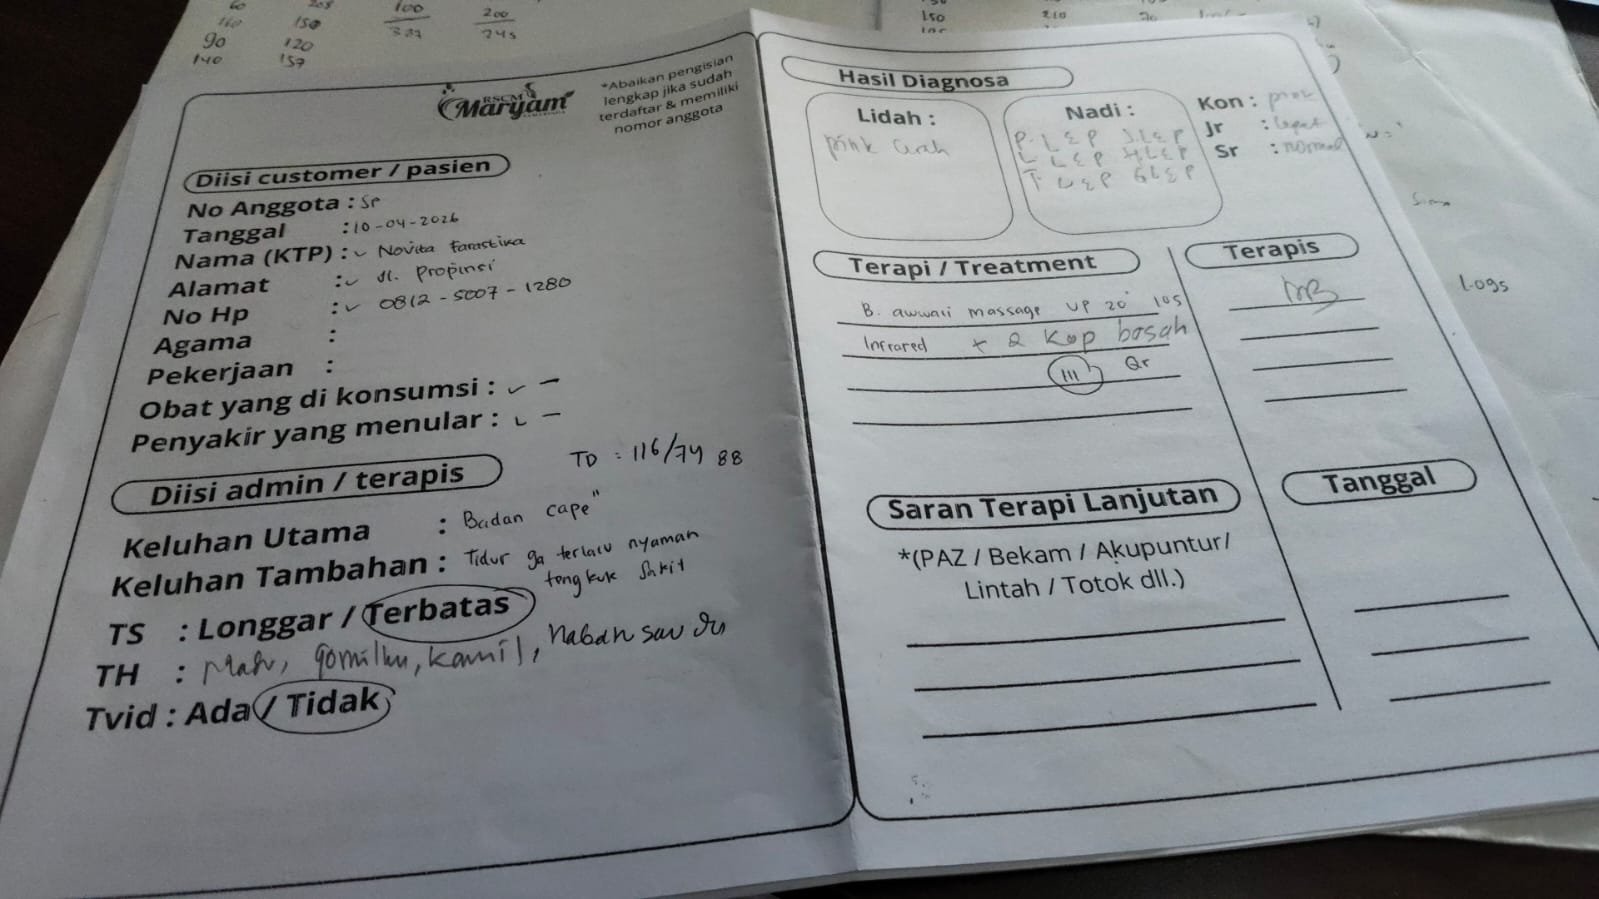 60
160 150
90 120
140 157
100
387
200
245
150 210
RSCM
Maryam
*Abaikan pengisian
lengkap jika sudah
terdaftar & memiliki
nomor anggota
Diisi customer / pasien
No Anggota : SP
Tanggal : 10-04-2026
Nama (KTP) : Novita Farastika
Alamat : Jl. Propinsi
No Hp : 0812-5007-1280
Agama :
Pekerjaan :
Obat yang di konsumsi : -
Penyakir yang menular : -
Diisi admin / terapis
TD : 116/74 88
Keluhan Utama : Badan cape"
Keluhan Tambahan : Tidur ga terlalu nyaman
tengkuk sakit
TS : Longgar / Terbatas
TH :
Tvid : Ada / Tidak
Hasil Diagnosa
Lidah :
pink cerah
Nadi :
P. L E P S. L E P
L L E P H. L E P
T L E P G L E P
Kon : pink
Jr : cepat
Sr : normal
Terapi / Treatment
B. awwali massage up 20' 105
Infrared + 2 Kop basah
111 Qr
Terapis
Saran Terapi Lanjutan
*(PAZ / Bekam / Akupuntur/
Lintah / Totok dll.)
Tanggal